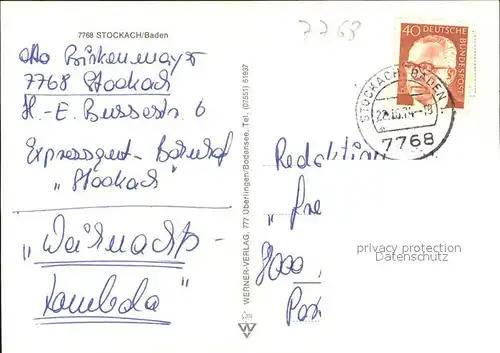 7768 STOCKACH/Baden
7768
Otto Birkenmayer
7768 Stockach
H.-E. Busse str. 6
Expressgut-Bahnhof
"Stockach"
"Weihnachts-
Tombola"
WERNER-VERLAG, 777 Überlingen/Bodensee, Tel. (07551) 61937
40 DEUTSCHE
BUNDESPOST
STOCKACH, BADEN
74-18
7768
Redaktion
"fre
8000
Pos
privacy protection
Datenschutz